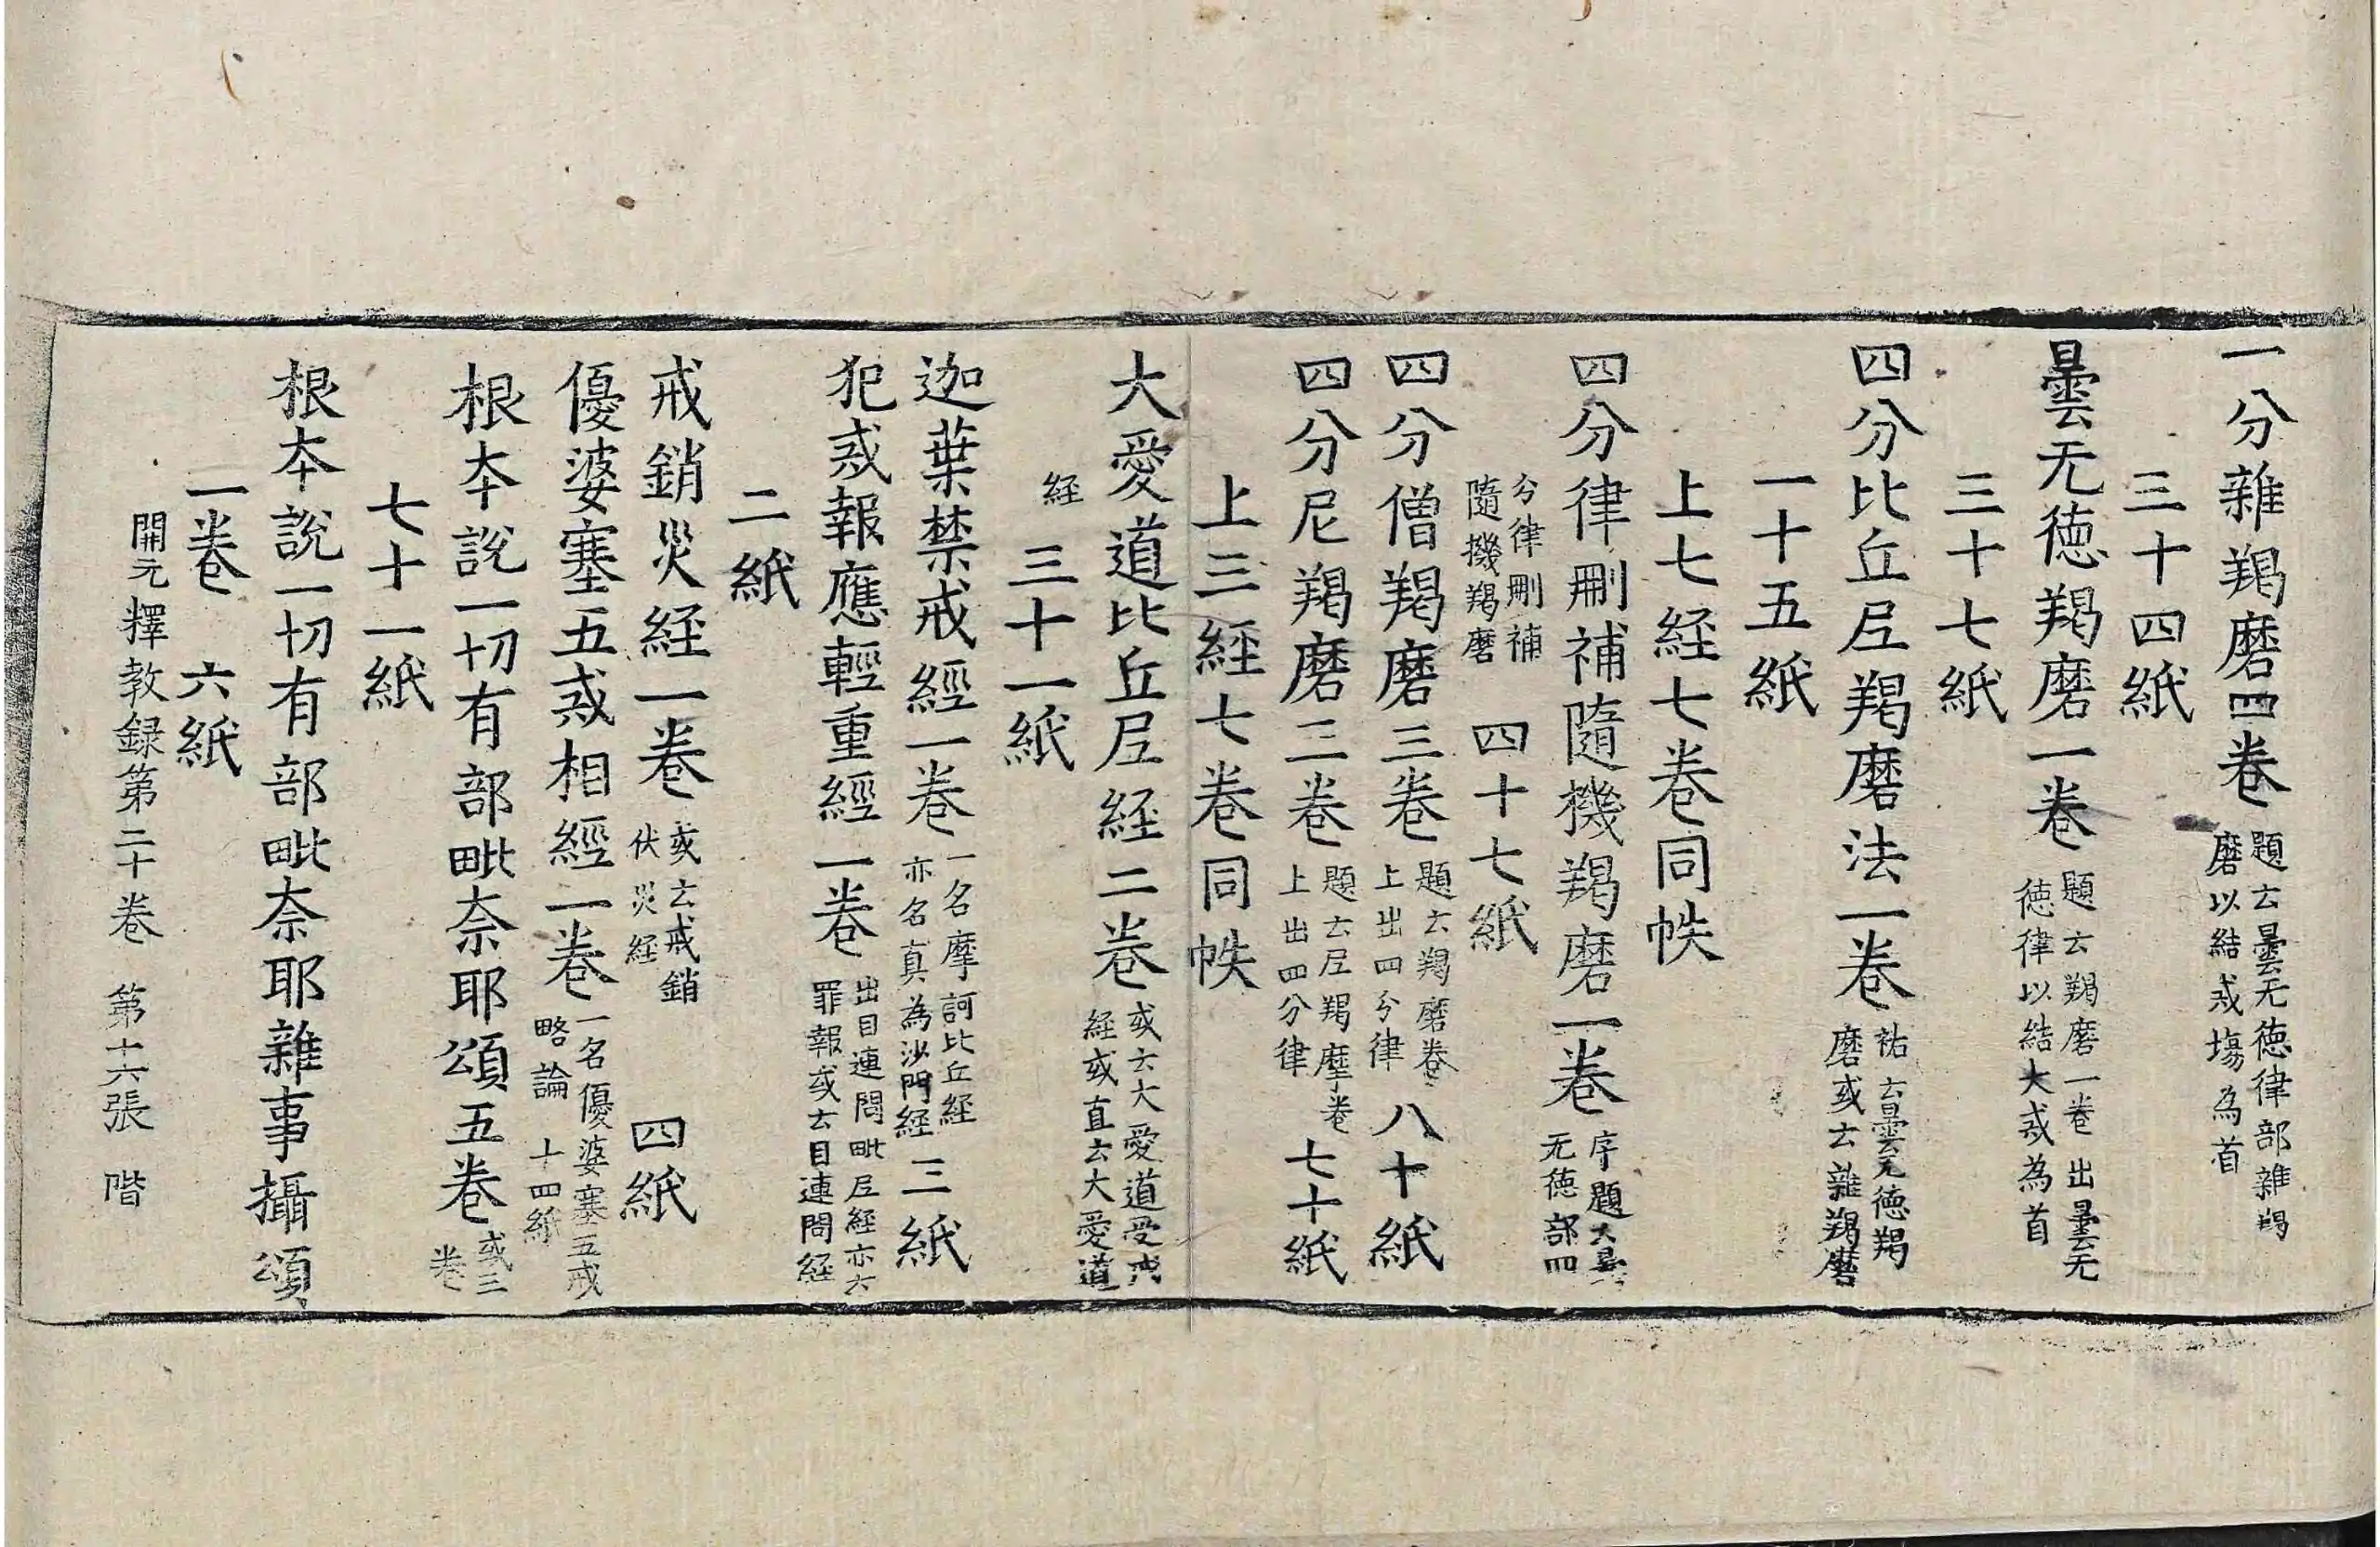 一分雜羯磨四卷 題云曇无德律部雜羯磨以結戒場為首
三十四紙
曇无德羯磨一卷 題云羯磨一卷出曇无德律以結大戒為首
三十七紙
四分比丘尼羯磨法一卷 祐云曇无德羯磨或云雜羯磨
一十五紙
上七経七卷同帙
四分律刪補隨機羯磨一卷 序題云曇无德部四
分律刪補隨機羯磨 四十七紙
四分僧羯磨三卷 題云羯磨卷上出四分律 八十紙
四分尼羯磨二卷 題云尼羯摩卷上出四分律 七十紙
上三経七卷同帙
大愛道比丘尼経二卷 或云大愛道受戒経或直云大愛道
経 三十一紙
迦葉禁戒經一卷 一名摩訶比丘経亦名真為沙門経 三紙
犯戒報應輕重經一卷 出目連問毗尼経亦六罪報或云目連問経
二紙
戒銷災経一卷 或云戒銷伏災経 四紙
優婆塞五戒相經一卷 一名優婆塞五戒略論 十四紙
根本說一切有部毗奈耶頌五卷 或三卷
七十一紙
根本說一切有部毗奈耶雜事攝頌
一卷 六紙
開元釋教録第二十卷 第十六張 階